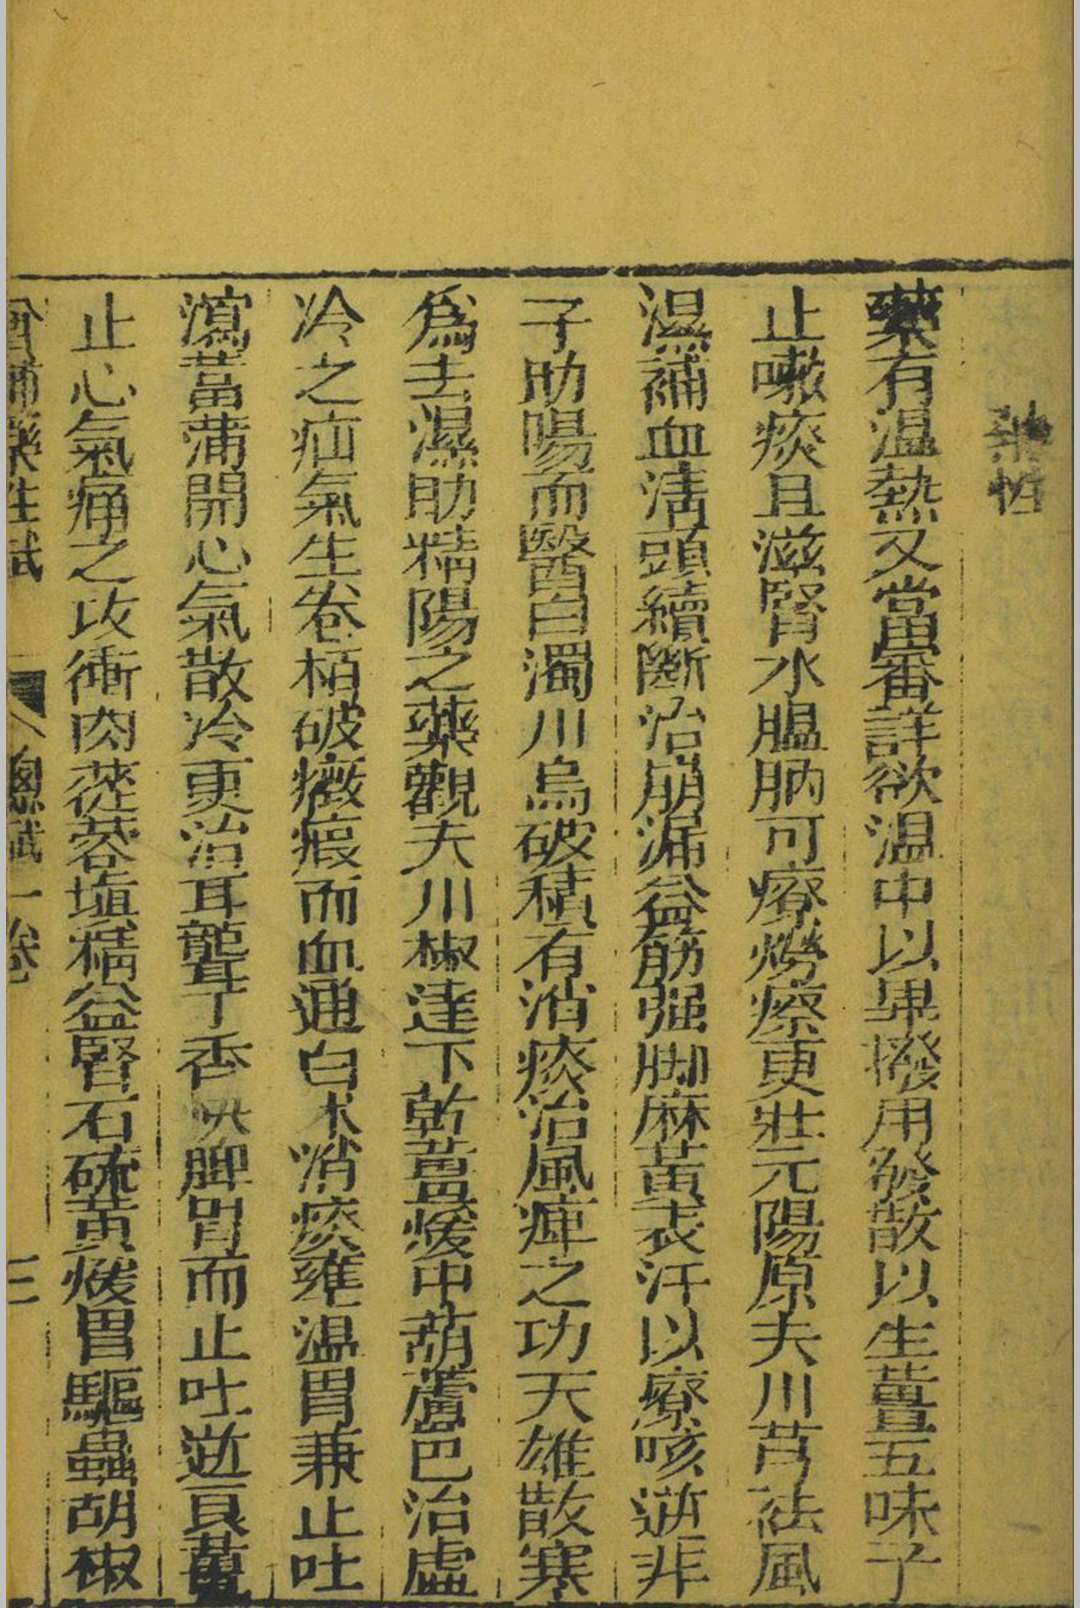 藥性
藥有温熱又當審詳欲温中以蓽撥用發散以生薑五味子
止嗽痰且滋腎水膃肭可療癆瘵更壯元陽原夫川芎祛風
濕補血淸頭續斷治崩漏益筋强脚麻黄表汗以療咳逆韭
子助陽而醫白濁川烏破積有消痰治風痺之功天雄散寒
爲去濕助精陽之藥觀夫川椒達下乾薑煖中葫蘆巴治虛
冷之疝氣生卷柏破癥瘕而血通白术消痰壅温胃兼止吐
瀉菖蒲開心氣散冷更治耳聾丁香快脾胃而止吐逆良薑
止心氣痛之攻衝肉蓯蓉塡精益腎石硫黄煖胃驅蟲胡椒
藥性賦 總賦一卷 三